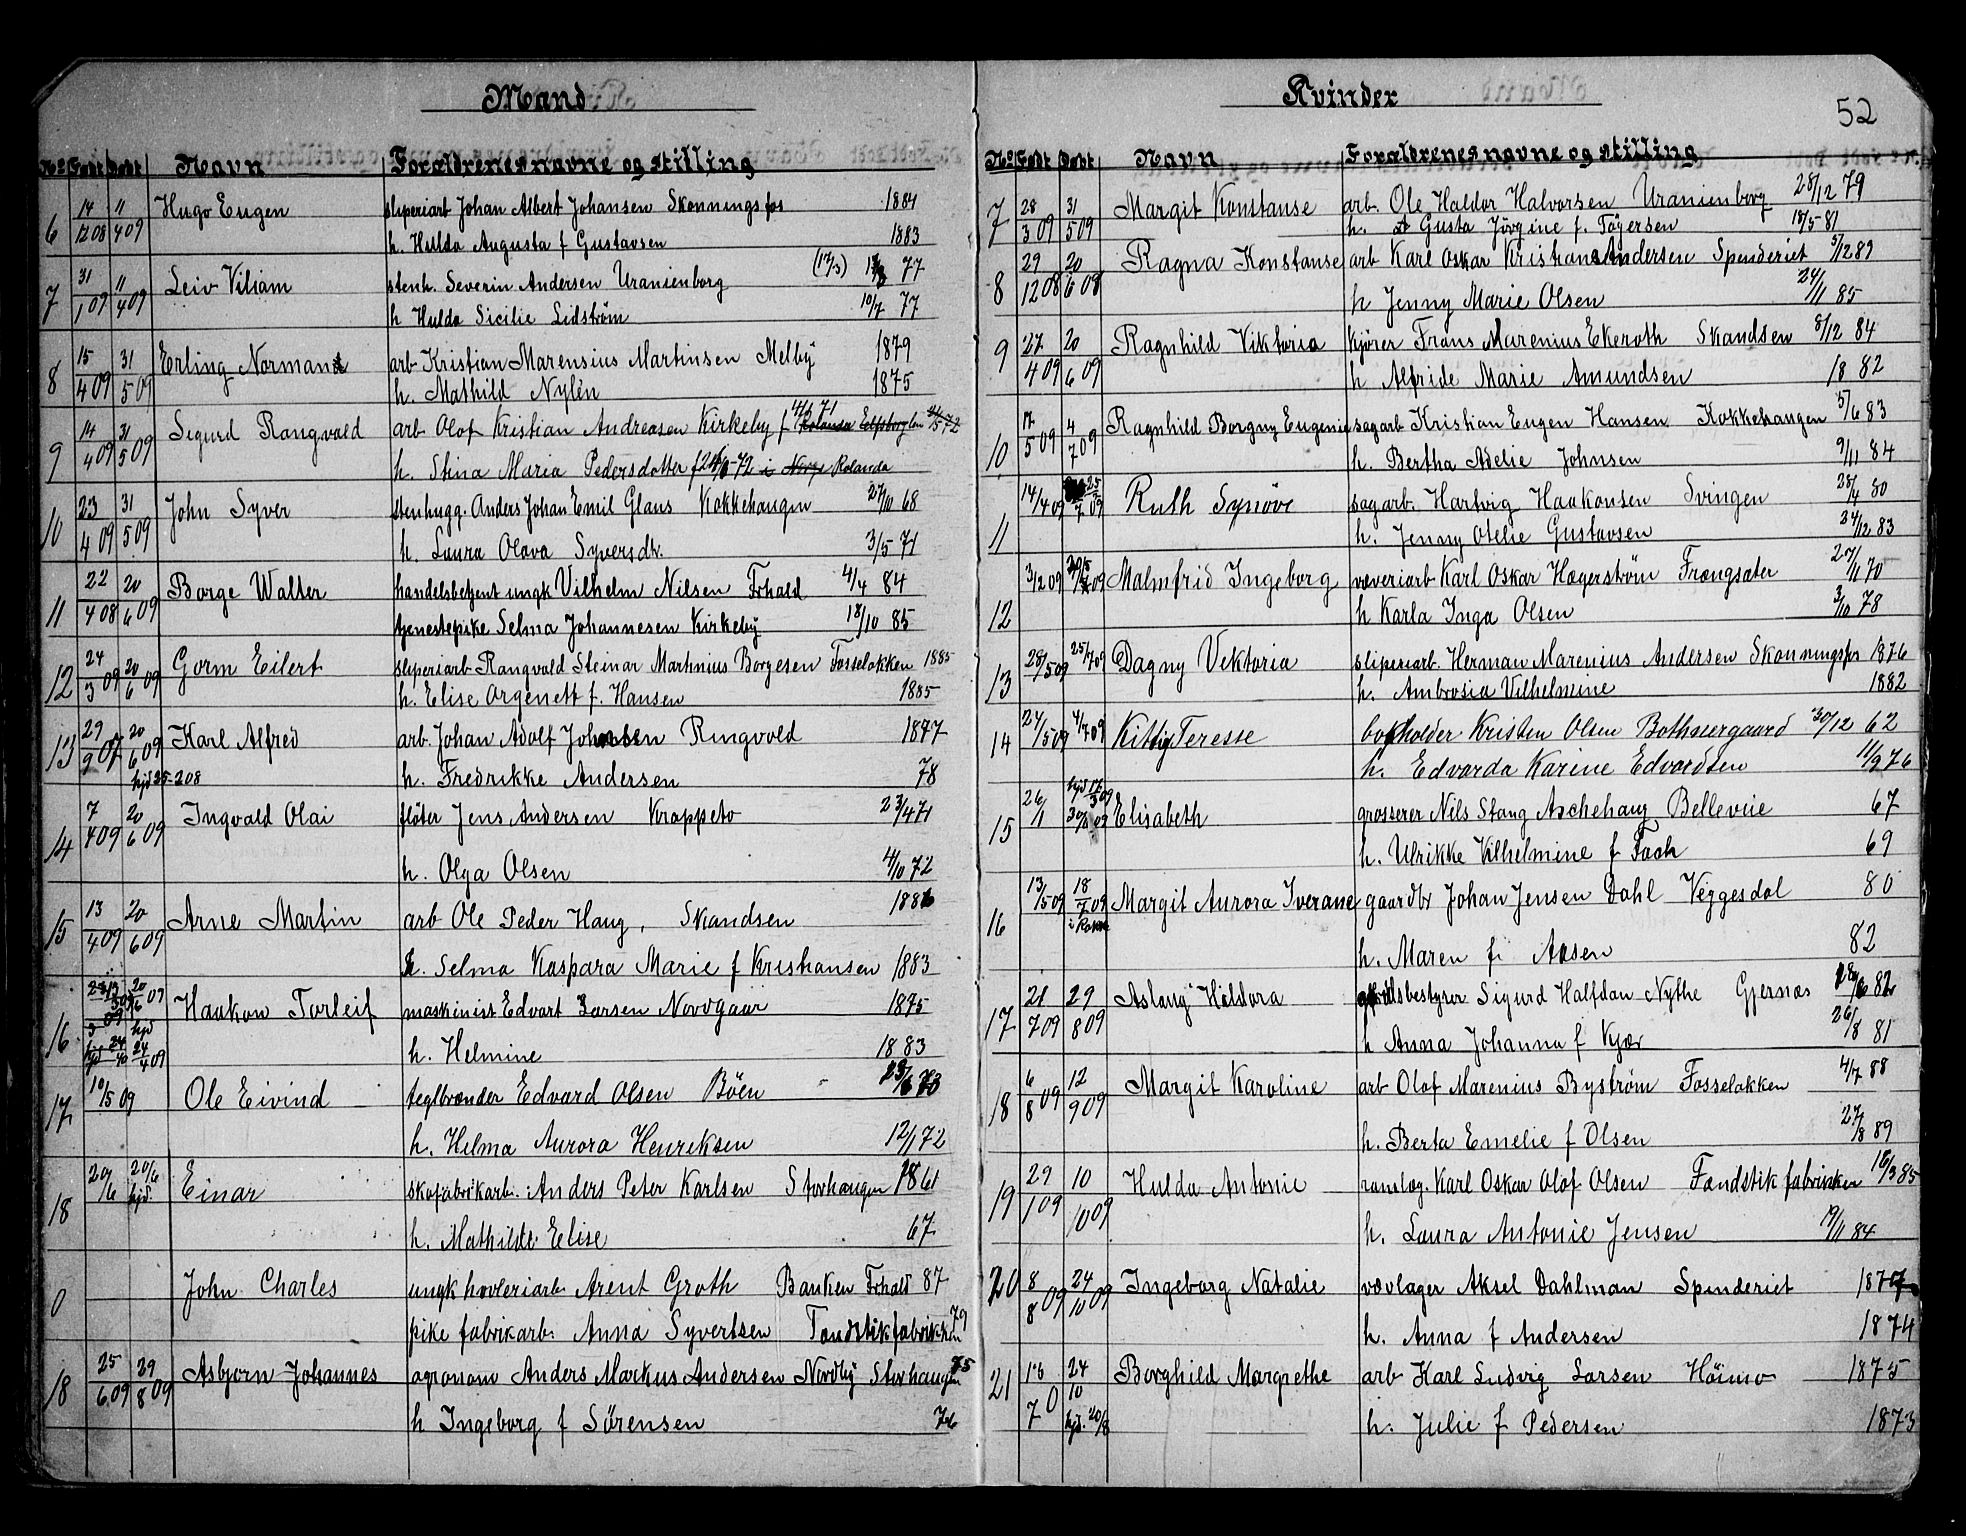 Mand
No Født Døbt Navn Forældrenes navne og stilling
6 14/12 08 11/4 09 Hugo Eugen sliperiarb Johan Albert Johansen Skonningsfos 1884
h. Hulda Augusta f Gustavsen 1883
7 31/1 09 11/4 09 Leiv Viliam stenh. Severin Andersen Uranienborg (17/3) 77
h Hulda Sicilie Lidstrøm 10/7 77
8 15/4 09 31/5 09 Erling Normann arb Kristian Marensius Martinsen Melby 1879
h. Mathild Nylén 1875
9 14/4 09 31/5 09 Sigurd Rangvald arb Olof Kristian Andreasen Kirkeby f 71
h. Stina Maria Pedersdotter 72 i Norge Rolanda
10 23/4 09 31/5 09 John Syver stenhugg. Anders Johan Emil Glans Kokkehaugen 27/10 68
h. Laura Olava Syversdtr. 3/5 71
11 22/4 08 20/6 09 Borge Walter handelsbetjent ungk Vilhelm Nilsen Frhald 4/4 84
tjenestepike Selma Johannesen Kirkeby 18/10 85
12 24/3 09 20/6 09 Gorm Eilert sliperiarb Rangvald Steinar Martinius Borgesen Fosseløkken 1885
h. Elise Argenett f. Hansen 1885
13 29/9 07 20/6 09 Karl Alfred arb. Johan Adolf Johansen Ringvold 1877
hjd 25-2 08 h. Fredrikke Andersen 78
14 7/4 09 20/6 09 Ingvald Olai fløter Jens Andersen Krappeto 23/4 71
h. Olga Olsen 4/10 72
15 13/4 09 20/6 09 Arne Martin arb Ole Peder Haug, Skandsen 1886
h. Selma Kaspara Marie f Kristiansen 1883
16 20/6 09 Haakon Torleif maskinist Edvart Larsen Nordgaar 1875
hjd 24/4 09 h. Helmine 1883
17 10/5 09 Ole Eivind teglbrænder Edvard Olsen Böen 73
h. Hilma Aurora Henriksen 12/1 72
18 20/6 20/6 hjd. Einar skofabrikarb. Anders Peter Karlsen Storhaugen 1861
h. Mathilde Elise 67
0 John Charles ungk hovleriarb Arent Groth Banken Frhald 87
pike fabrikarb. Anna Syvertsen Tændstikfabrikken 79
18 25/6 09 29/8 09 Asbjørn Johannes agronom Anders Markus Andersen Nordby Storhaugen 75
h Ingeborg f Sørensen 76
Kvinder
52
No Født Døbt Navn Forældrenes navne og stilling
7 28/3 09 31/5 09 Margit Konstanse arb. Ole Haldor Halvorsen Uranienborg 28/12 79
h. Gusta Jörgine f. Tögersen 18/5 81
8 29/12 08 20/6 08 Ragna Konstanse arb Karl Oskar Kristian Andersen Spinderiet 5/12 89
h Jenny Marie Olsen 24/11 85
9 27/4 09 20/6 09 Ragnhild Viktoria kjører Frans Marenius Ekeroth Skandsen 8/12 84
h Alfride Marie Amundsen 18 82
10 17/5 09 4/7 09 Ragnhild Borgny Eugenie sagarb Kristian Eugen Hansen Kokkehaugen 5/6 83
h. Bertha Adelie Johnsen 9/11 84
11 14/4 09 25/7 09 Ruth Synöve sagarb. Hartvig Haakonsen Svingen 25/4 80
h. Jenny Otelie Gustavsen 24/12 83
12 3/12 09 09 Malmfrid Ingeborg væveriarb Karl Oskar Hægerstrøm Frængsæter 27/11 70
h Karla Inga Olsen 3/10 78
13 28/5 09 25/7 09 Dagny Viktoria sliperiarb. Herman Marenius Andersen Skonningsfos 1876
h. Ambrosia Vilhelmine 1882
14 27/5 09 4/7 09 Kitty Teresse bokholder Kristen Olsen Bothnergaard 30/12 62
h. Edvarda Karine Edvardsen 11/9 76
15 26/1 hjd 17/3 09 Elisabeth grosserer Nils Stang Aschehaug Bellevue 67
h. Ulrikke Vilhelmine f Fach 69
16 13/5 09 18/7 09 i Rokke Margit Aurora Iverane gaardbr Johan Jensen Dahl Veggesdal 80
h. Maren f. Aasen 82
17 21/7 09 29/8 09 Aslaug Heldora bestyrer Sigurd Halfdan Nythe Gjernæs 82
h Anna Johanna f Kjær 26/8 81
18 6/8 09 12/9 09 Margit Karoline arb Olof Marenius Byström Fosseløkken 4/7 88
h. Berta Emelie f Olsen 27/8 89
19 29/1 09 10/10 09 Hulda Antonie ramlæg. Karl Oskar Olof Olsen Tændstikfabrikken 18/3 85
h. Laura Antonie Jensen 19/11 84
20 8/8 09 24/10 09 Ingeborg Natalie vævlager Aksel Dahlman Spinderiet 1877
h. Anna f Andersen 1874
21 13/7 0 24/10 Borghild Margrethe arb Karl Ludvig Larsen Höimo 1875
hjd. 20/8 h. Julie f Pedersen 1873